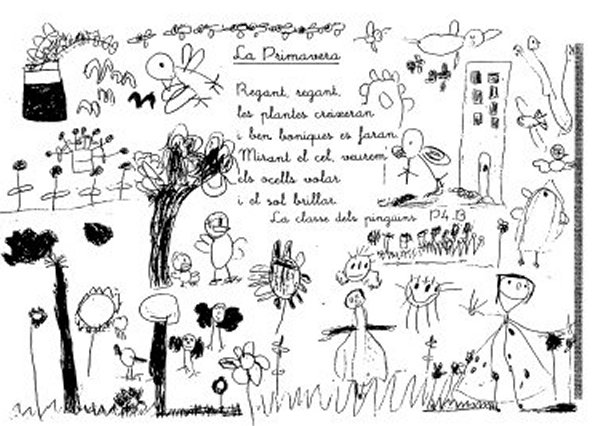 La Primavera
Regant, regant,
les plantes creixeran
i ben boniques es faran.
Mirant el cel, veurem
els ocells volar
i el sol brillar.
La classe dels pingüins P4.B